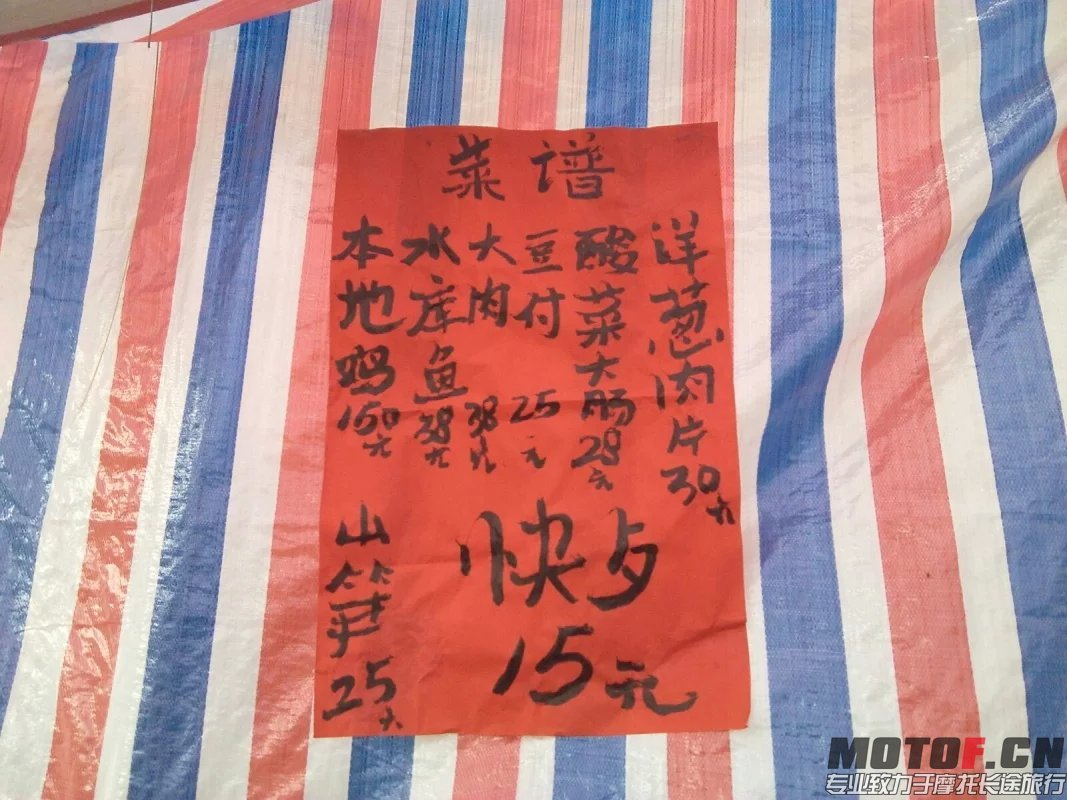 菜谱
本地鸡150元
水库鱼38元
大肉38元
豆付25元
酸菜大肠28元
洋葱肉片30元
山笋25元
快歺
15元
MOTOF.CN
专业致力于摩托长途旅行